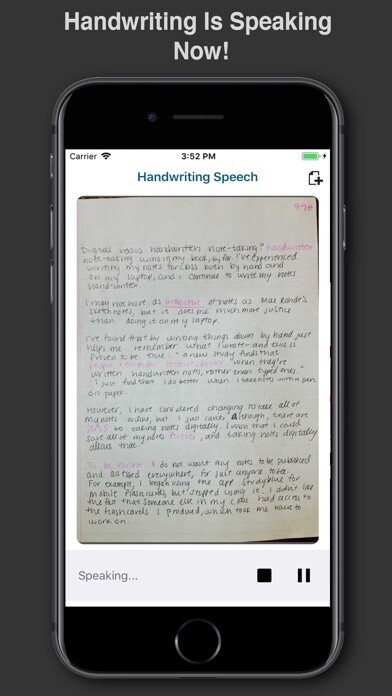 Handwriting Is Speaking
Now!
Carrier
3:52 PM
Handwriting Speech
Digital versus handwritten note-taking? Handwritten
note-taking wins in my book, by far. I've experienced
writing my notes for class both by hand and
on my laptop, and I continue to write my notes
hand-written.
I may not have as of notes as Mike Rohde's
sketchnotes, but it does me much more justice
than doing it on my laptop.
I've found that by writing things down by hand just
helps me remember what I wrote- and this is
proven to be true: "a new study finds that
people when they're
written handwritten notes, rather than typed ones."
I just find that I do better when I take notes with a pen
on paper.
However, I have considered changing to take all of
my notes online, but I just can't. enough, there are
to taking notes digitally. I wish that I could
save all of my notes forever, and taking notes digitally
allows that.
To be honest I do not want my notes to be published
and accessed everywhere, for just anyone to see.
For example, I began using the app studyblue for
mobile flashcards, but stopped using it. I didn't like
the fact that someone else in my class had access to
the flashcards I produced, which took me hours to
work on.
Speaking...